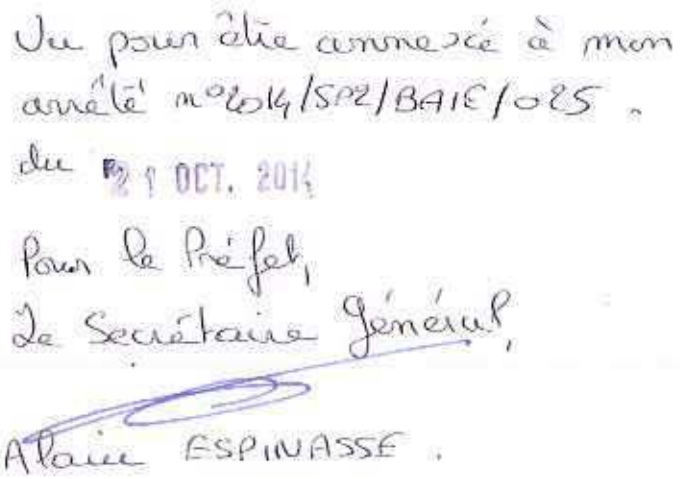 Vu pour être annexé à mon
arrêté n°2014/SP2/BAIE/025.
du 21 OCT. 2014
Pour le Préfet,
Le Secrétaire Général,
Alain ESPINASSE.